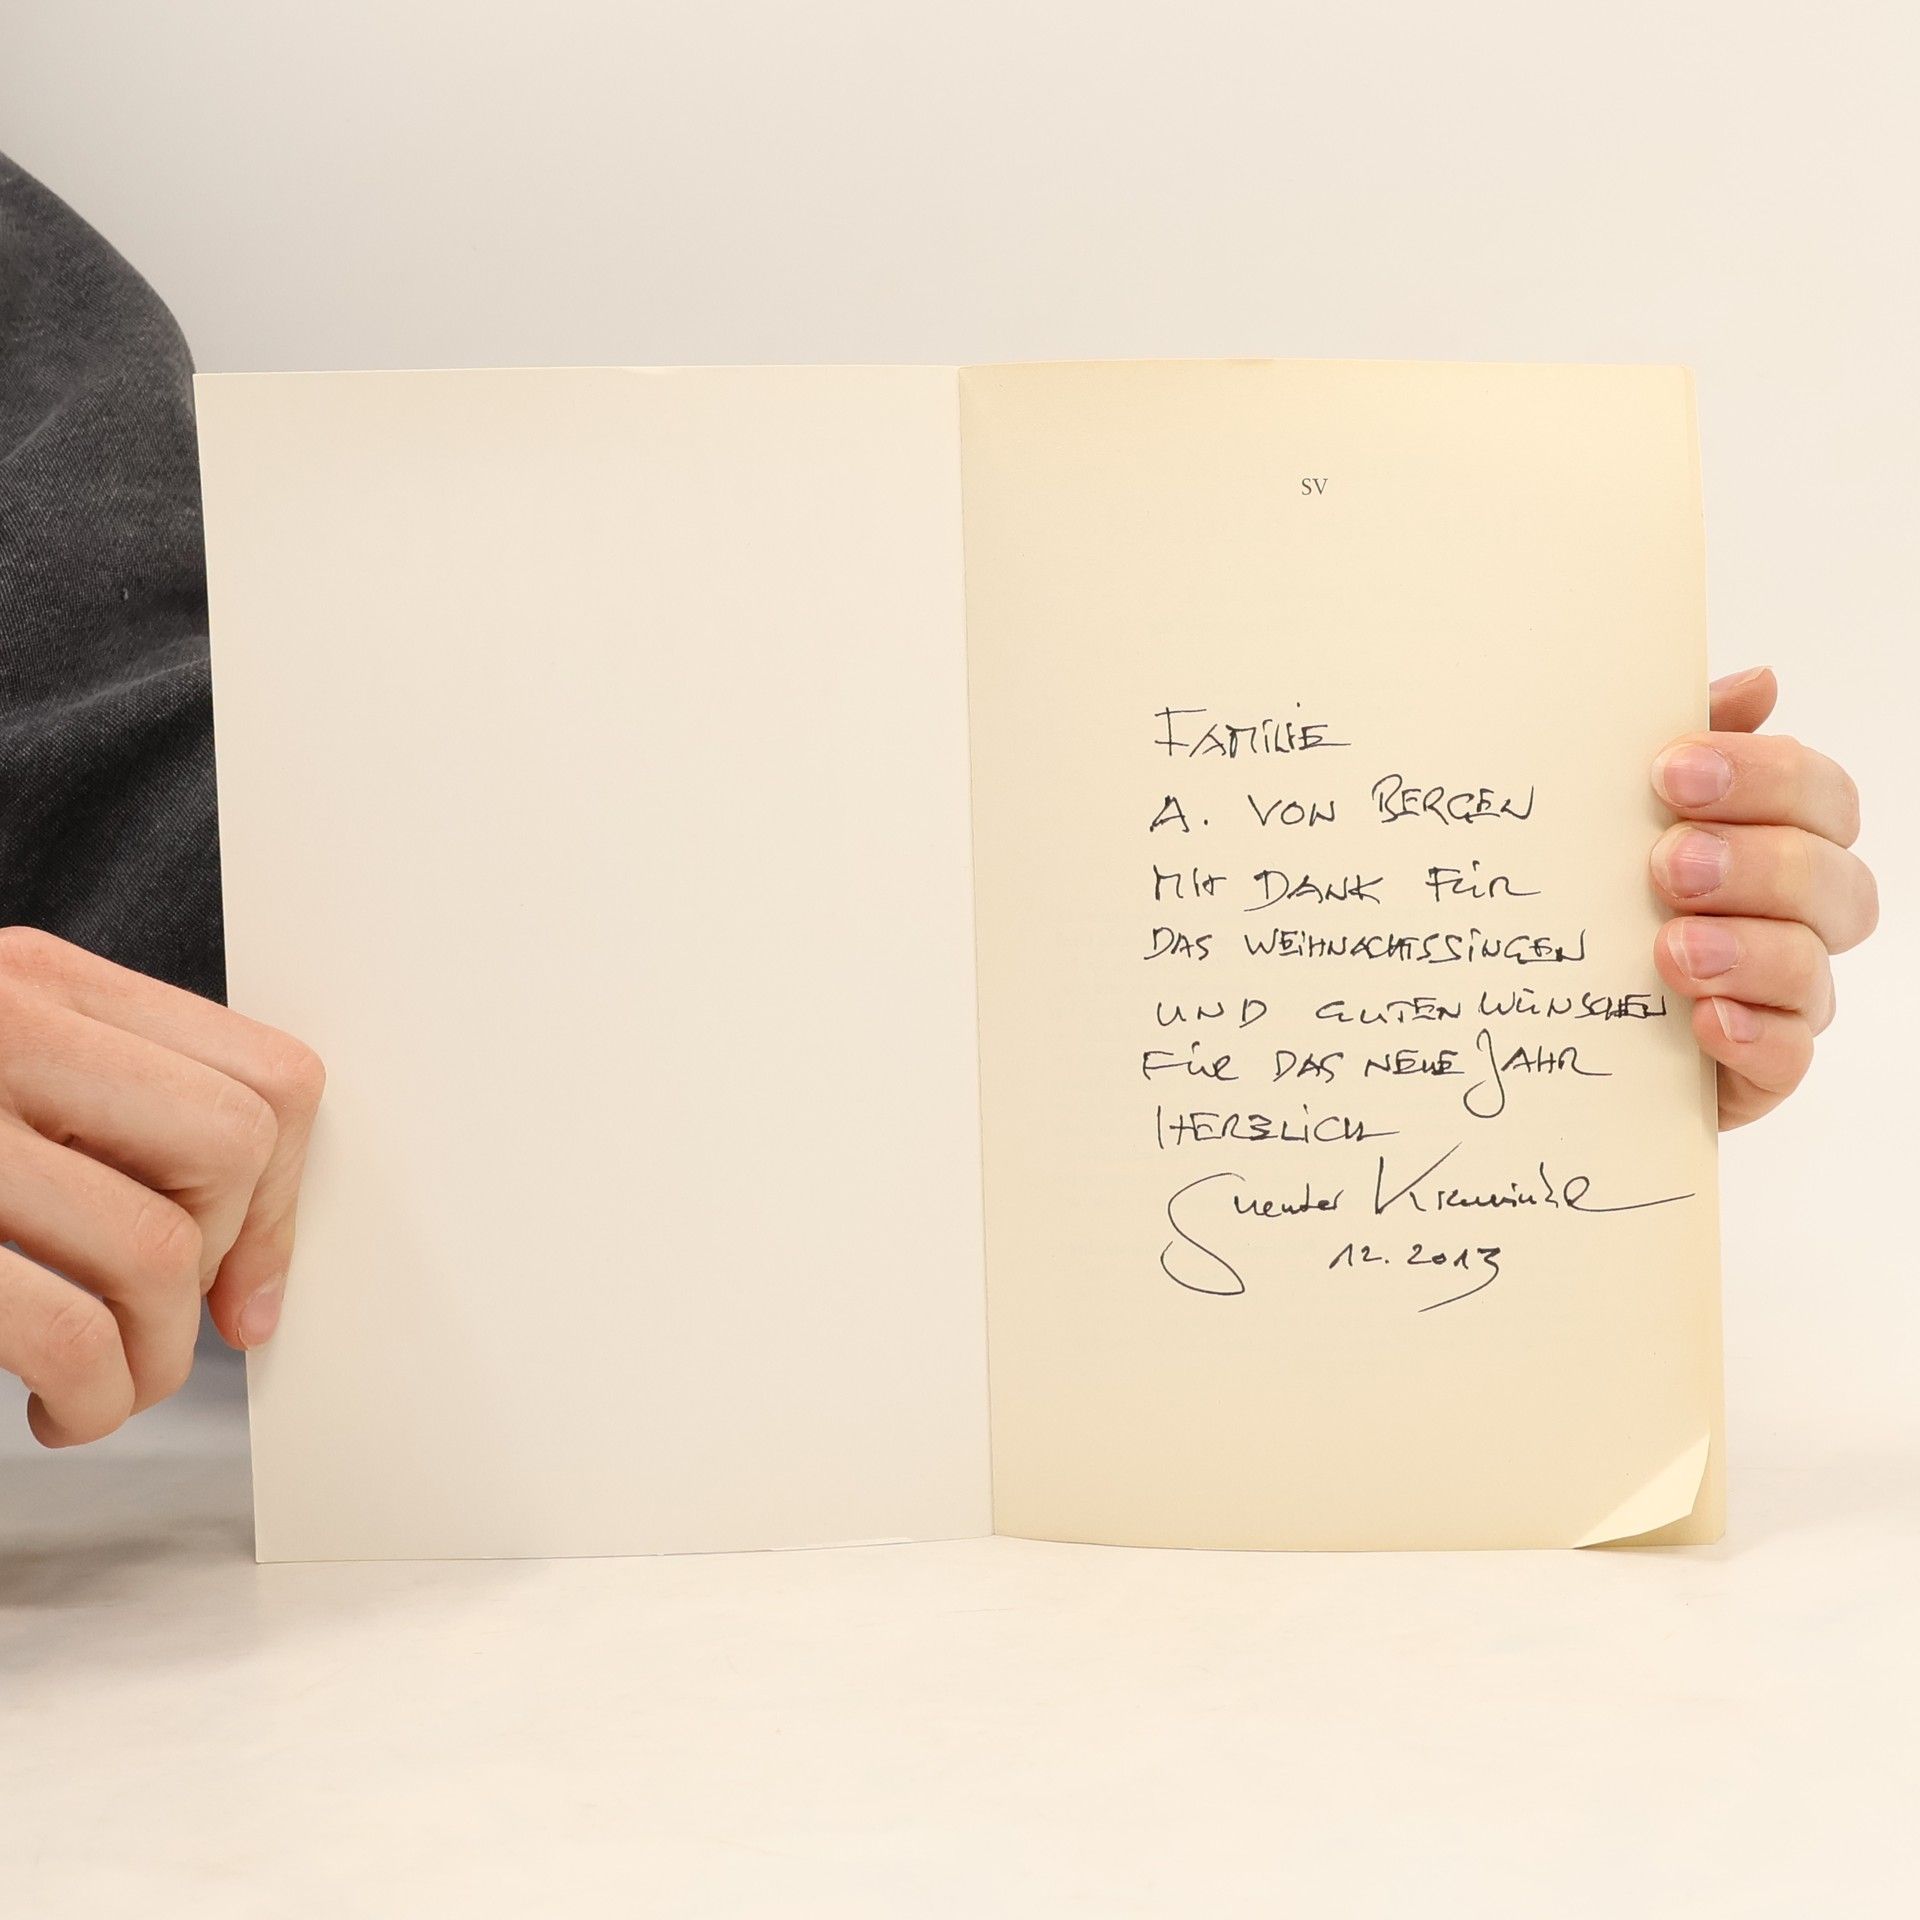 SV
FAMILIE
A. VON BERGEN
MIT DANK FÜR
DAS WEIHNACHTSSINGEN
UND GUTEN WÜNSCHEN
FÜR DAS NEUE JAHR
HERZLICH
Guenter
12.2013